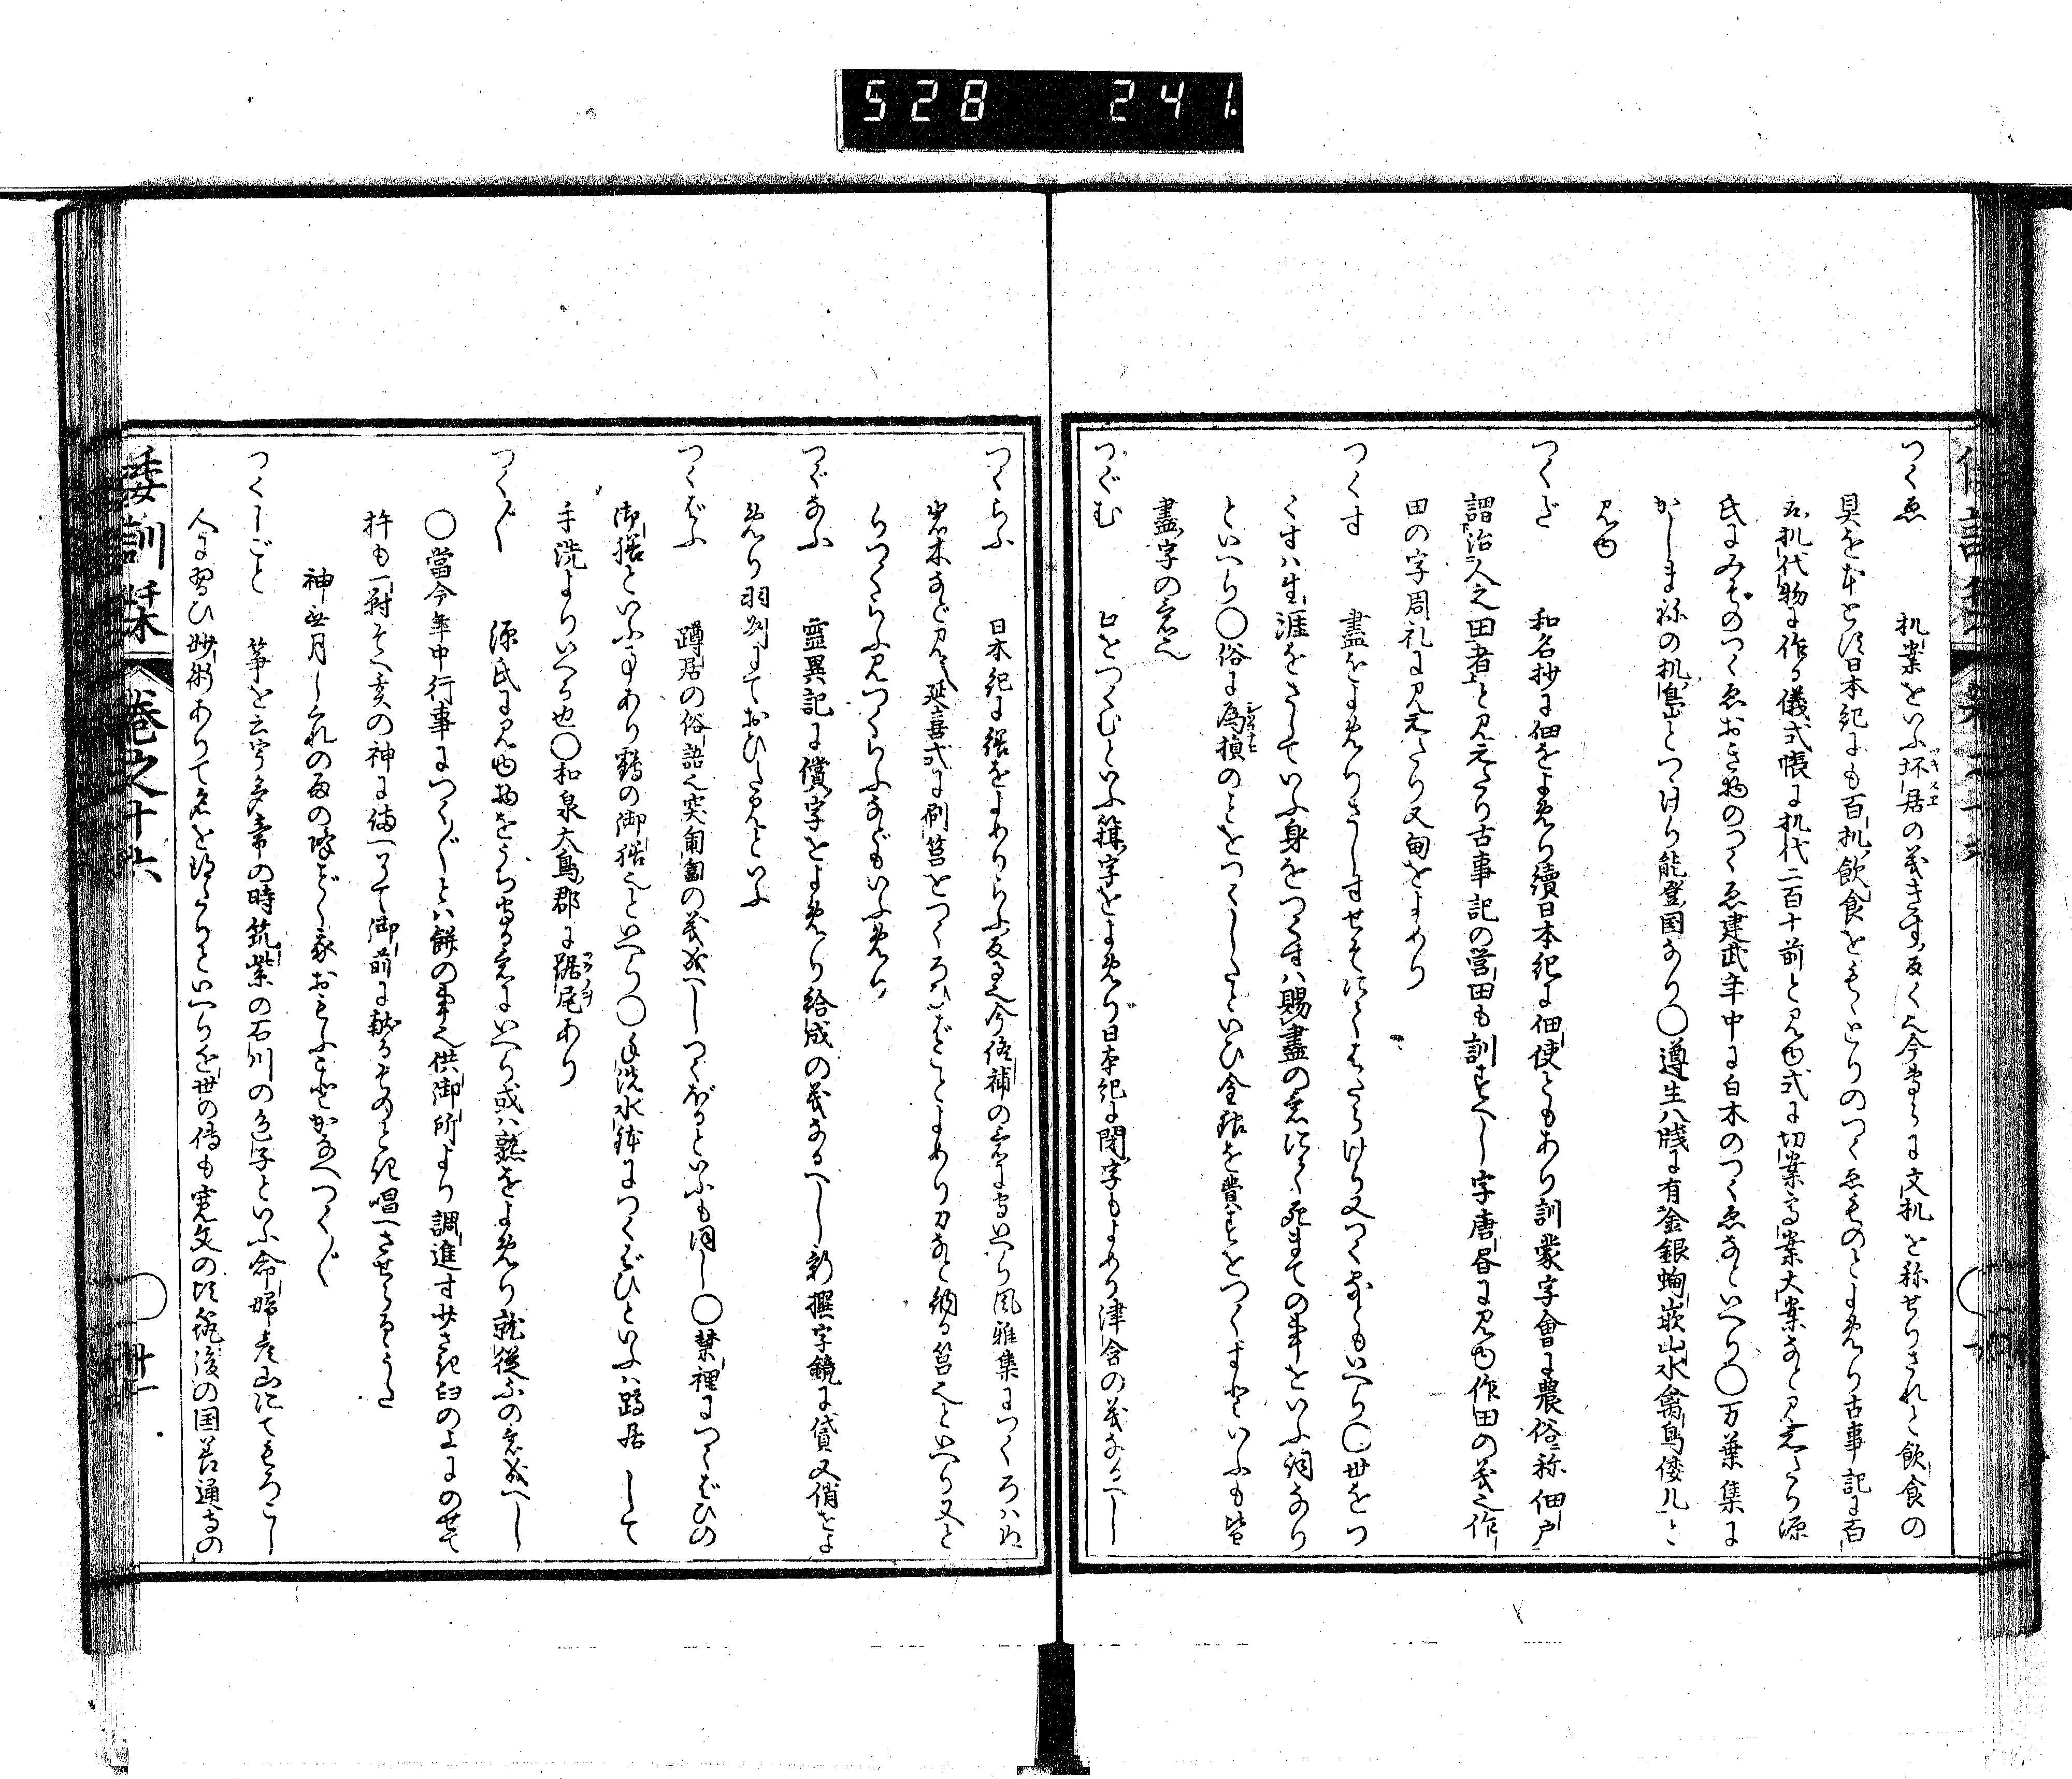 528 241
つくゑ 机案をいふ坏居の義きす反く也今専らに文机を称せりされと飲食の
具を本とす日本紀にも百机飲食をもゝとりのつくゑものとよめり古事記に百
取机代物に作る儀式帳に机代二百十前と見ゆ式に切案高案大案なと見えたり源
氏にみづのつくゑおき物のつくゑ建武年中に白木のつくゑなといへり○万葉集に
かしまねの机島とつけり能登国なり○遵生八牋に有金銀蜔嵌山水禽鳥倭几と
見ゆ
つくだ 和名抄に佃をよめり續日本紀に佃使ともあり訓蒙字會に農俗称佃戸
謂治人之田者と見えたり古事記の営田も訓すへし字唐書に見ゆ作田の義也作
田の字周礼に見えたり又甸をよめり
つくす 盡をよめりさしすせそにてはたらけり又つくなともいへり○世をつ
くすハ生涯をさしていふ身をつくすハ賜盡の意にて死まての事をいふ詞なり
といへり○俗に為損のことをつくしたといひ金銀を費すをつくすなといふも皆
盡字の意也
つぐむ 口をつぐむといふ箝字をよめり日本紀に閉字もよめり津含の義なるへし
つくらふ 日本紀に繕をよめりらふ反る也今修補の意に専いへり風雅集につくろハぬ
岩木なと見ゆ延喜式に刷筥をつくろひばことよめり刀なと納る筥也といへり又と
りつくらふ見つくらふなどもいふめり
つぐなふ 靈異記に償字をよめり給成の義なるへし新撰字鏡に貸又債をよ
めり羽州にておひためといふ
つくばふ 蹲居の俗語也突匍匐の義成へしつくばるといふも同し○禁裡につくばひの
御膳といふ事あり鶴の御膳也といへり○手洗水鉢につくばひといふハ蹲居して
手洗よりいへる也○和泉大鳥郡に踞尾あり
つく〲 源氏に見ゆ物をうち守る意にいへり或ハ熟をよめり就従ふの意成へし
○當今年中行事につく〲とハ餅の事也供御所より調進す廿さ紀臼の上にのせて
杵も一対そへ亥の神に備へて御前に献るものとぞ唱へさせらるゝうた
神無月しくれの雨の降ごとく我おもふことかなへつく〲
つくしごと 箏を云宇多帝の時筑紫の石川の色子といふ命婦彦山にてもろこし
人に習ひ妙術ありて名を得たりといへり近世の傳も寛文の頃筑後の国善導寺の
倭訓栞 巻之十六 卅一